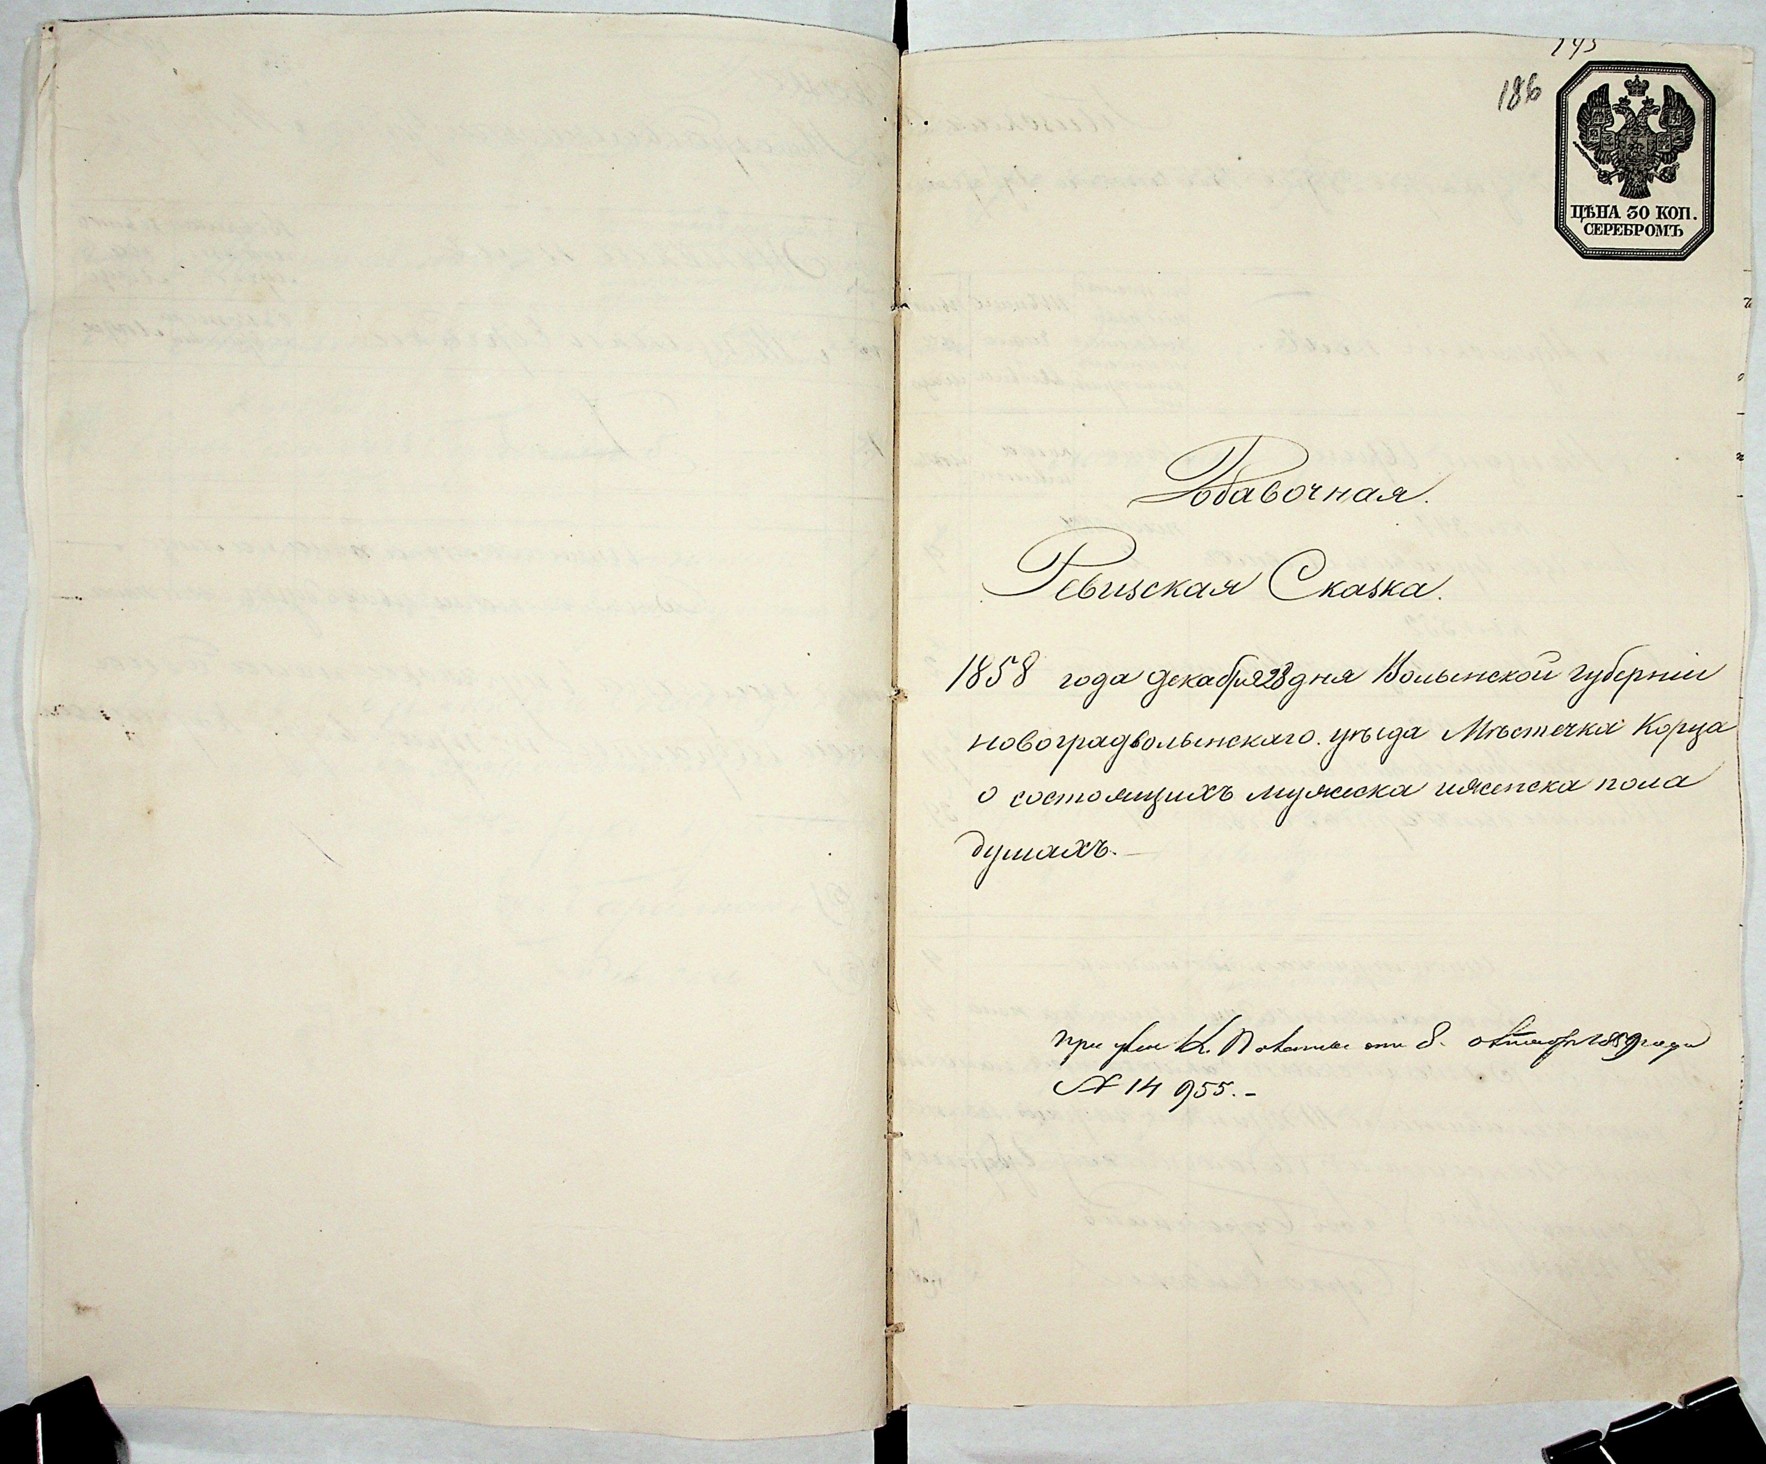 195
186
ЦѢНА 30 КОП.
СЕРЕБРОМЪ
Добавочная.
Ревизская Сказка.
1858 года декабря 28 дня Волынской губерніи
новоградволынскаго уѣзда Мѣстечка Корца
о состоящихъ мужеска и женска пола
душахъ.
при К. Палаты отъ 8. октября 1859 года
№ 14955.-